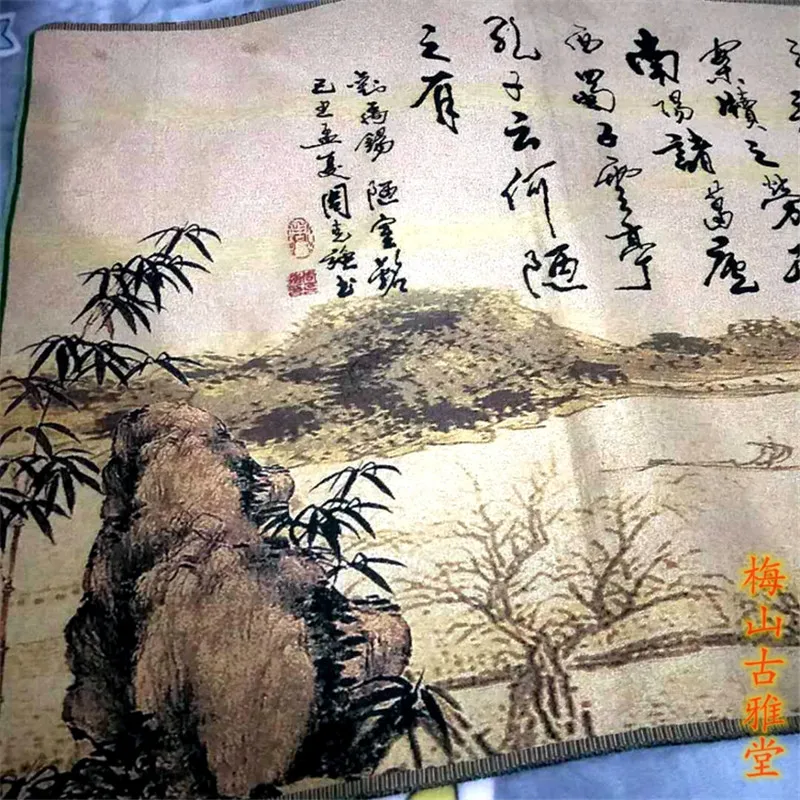 案牘之勞
南陽諸葛廬
西蜀子雲亭
孔子云何陋
之有
劉禹錫 陋室銘
己丑孟夏周强书
梅山古雅堂